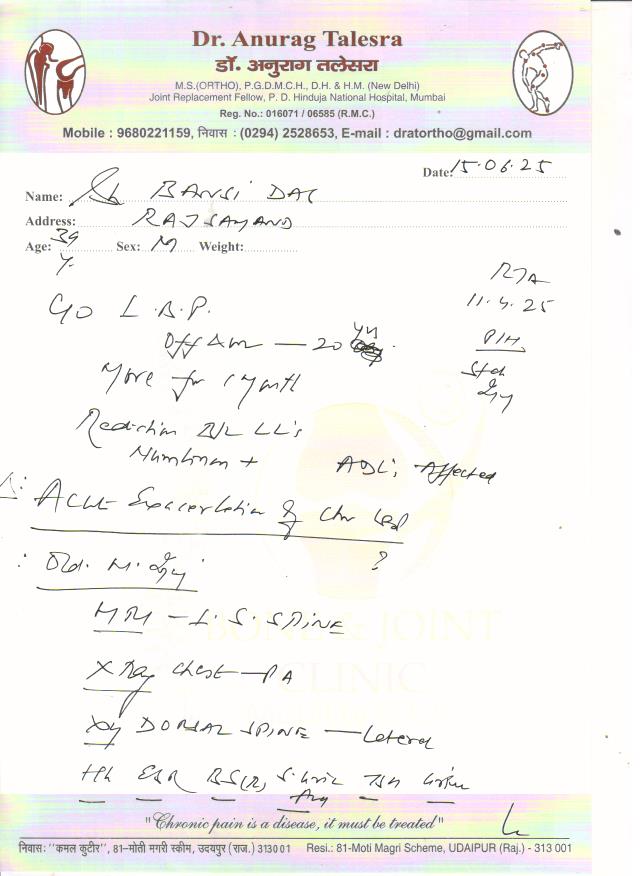 Dr. Anurag Talesra
डॉ. अनुराग तलेसरा
M.S.(ORTHO), P.G.D.M.C.H., D.H. & H.M. (New Delhi)
Joint Replacement Fellow, P. D. Hinduja National Hospital, Mumbai
Reg. No.: 016071 / 06585 (R.M.C.)
Mobile : 9680221159, निवास : (0294) 2528653, E-mail : dratortho@gmail.com
Date: 15.06.25
Name: Sh BANSI DAS
Address: RAJSAMAND
Age: 39 Y. Sex: M Weight:
RTA
11.4.25
C/O L.B.P.
P/H
Off & on — 20 yrs
More for 1 month
Radiation B/L LL's
Numbness +
ADL's Affected
Δ: Acute Exacerbation of Chr LBP
?
Old.
MRI - L.S. SPINE
X Ray Chest - PA
BONE & JOINT
CLINIC
DORSAL SPINE — Lateral
Hb ESR BS(R) S. Uric TSH
Acid
"Chronic pain is a disease, it must be treated"
निवास: ''कमल कुटीर'', 81-मोती मगरी स्कीम, उदयपुर (राज.) 313001 Resi.: 81-Moti Magri Scheme, UDAIPUR (Raj.) - 313 001